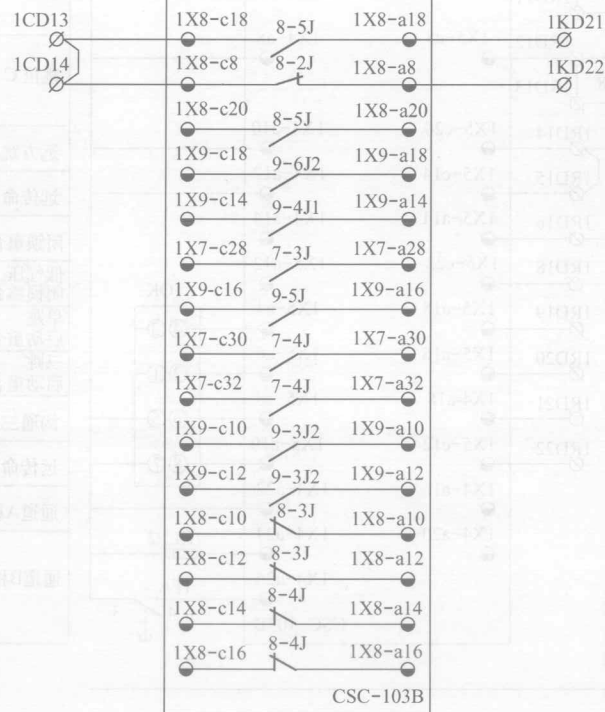 1CD13 1X8-c18 8-5J 1X8-a18 1KD21
1CD14 1X8-c8 8-2J 1X8-a8 1KD22
1X8-c20 8-5J 1X8-a20
1X9-c18 9-6J2 1X9-a18
1X9-c14 9-4J1 1X9-a14
1X7-c28 7-3J 1X7-a28
1X9-c16 9-5J 1X9-a16
1X7-c30 7-4J 1X7-a30
1X7-c32 7-4J 1X7-a32
1X9-c10 9-3J2 1X9-a10
1X9-c12 9-3J2 1X9-a12
1X8-c10 8-3J 1X8-a10
1X8-c12 8-3J 1X8-a12
1X8-c14 8-4J 1X8-a14
1X8-c16 8-4J 1X8-a16
CSC-103B